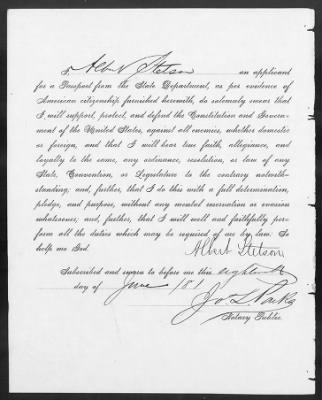 I, Albert Stetson an applicant
for a Passport from the State Department, as per evidence of
American citizenship furnished herewith, do solemnly swear that
I will support, protect, and defend the Constitution and Govern-
ment of the United States, against all enemies, whether domestic
or foreign, and that I will bear true faith, allegiance, and
loyalty to the same, any ordinance, resolution, or law of any
State, Convention, or Legislature to the contrary notwith-
standing; and, further, that I do this with a full determination,
pledge, and purpose, without any mental reservation or evasion
whatsoever; and, further, that I will well and faithfully per-
form all the duties which may be required of me by law. So
help me God.
Albert Stetson
Subscribed and sworn to before me this eighteenth
day of June 181
Jo. L. Parks
Notary Public.